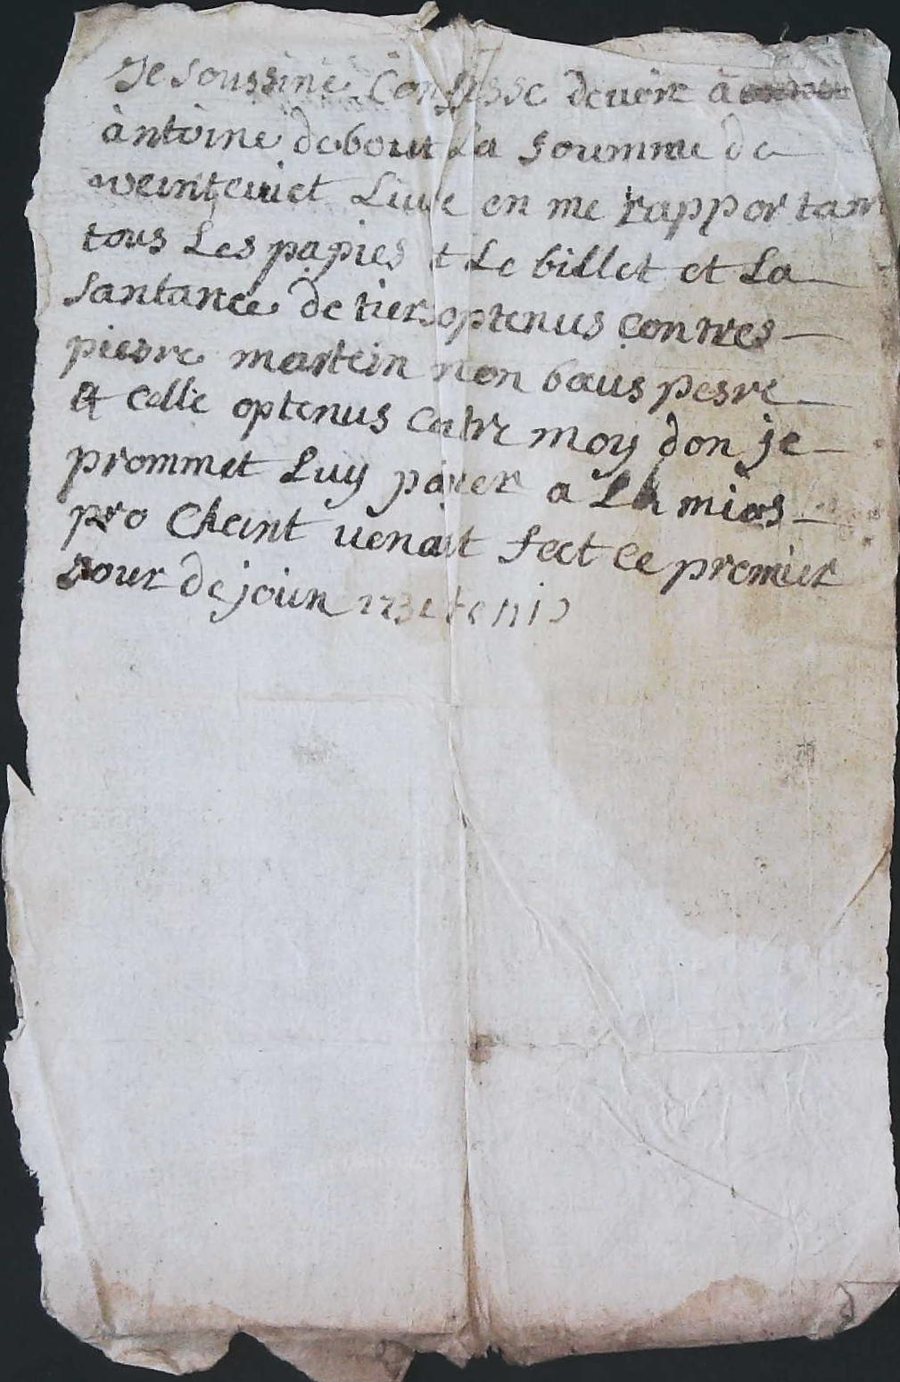 Je soussiné Confesse devoir à
àntoine debout La soumme de
veinteuict Livre en me rapportant
tous Les papies et Le billet et La
santance de tiers optenus contres
pierre martein mon baus pesre
et celle optenus contre moy don je
prommet Luy paier a La mios
procheint venant fect ce premier
jour de join